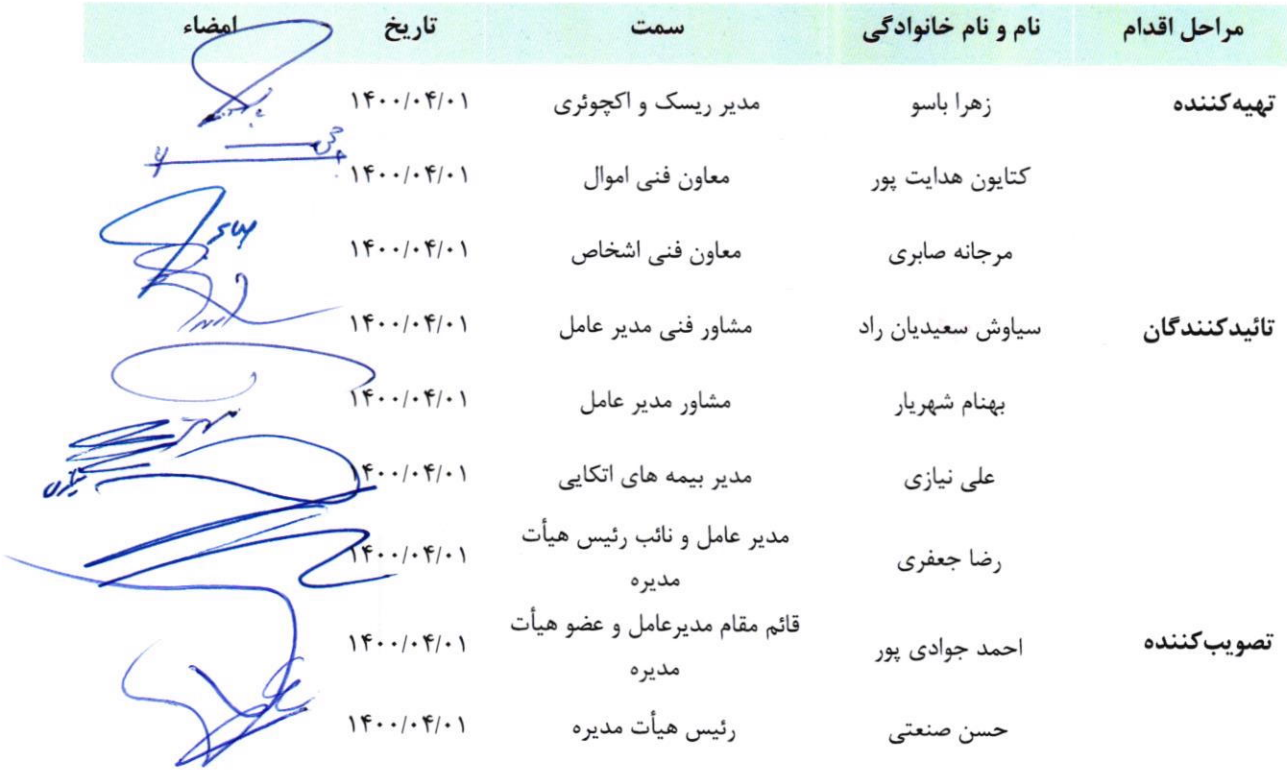 مراحل اقدام نام و نام خانوادگی سمت تاریخ امضاء
تهیه‌کننده زهرا باسو مدیر ریسک و اکچوئری ۱۴۰۰/۰۴/۰۱
کتایون هدایت پور معاون فنی اموال ۱۴۰۰/۰۴/۰۱
مرجانه صابری معاون فنی اشخاص ۱۴۰۰/۰۴/۰۱
تائیدکنندگان سیاوش سعیدیان راد مشاور فنی مدیر عامل ۱۴۰۰/۰۴/۰۱
بهنام شهریار مشاور مدیر عامل ۱۴۰۰/۰۴/۰۱
علی نیازی مدیر بیمه های اتکایی ۱۴۰۰/۰۴/۰۱
رضا جعفری مدیر عامل و نائب رئیس هیأت
مدیره ۱۴۰۰/۰۴/۰۱
تصویب‌کننده احمد جوادی پور قائم مقام مدیرعامل و عضو هیأت
مدیره ۱۴۰۰/۰۴/۰۱
حسن صنعتی رئیس هیأت مدیره ۱۴۰۰/۰۴/۰۱